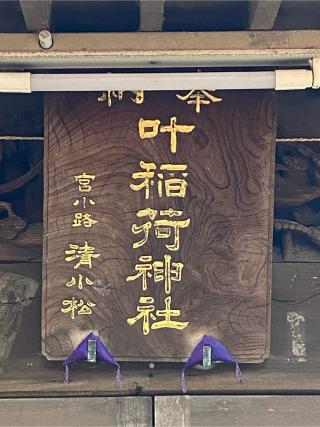 奉納
叶稲荷神社
宮小路
清小松